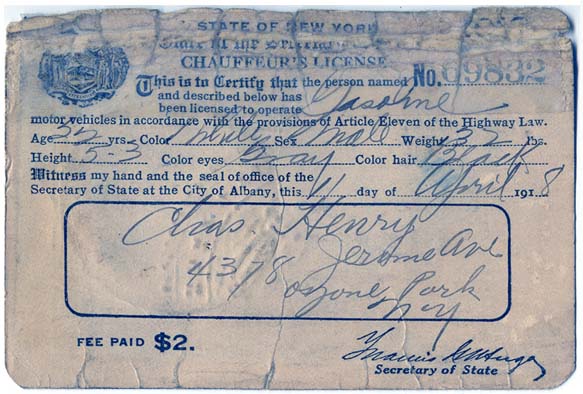 STATE OF NEW YORK
CHAUFFEUR'S LICENSE
This is to Certify that the person named No. 69832
and described below has
been licensed to operate Gasoline
motor vehicles in accordance with the provisions of Article Eleven of the Highway Law.
Age yrs. Color White Sex Male Weight 132 lbs.
Height 5-3 Color eyes Gray Color hair Black
Witness my hand and the seal of office of the
Secretary of State at the City of Albany, this 11 day of April 1918
Chas Henry
4378 Jerome Ave
Ozone Park
N Y
FEE PAID $2.
Francis M. Hugo
Secretary of State